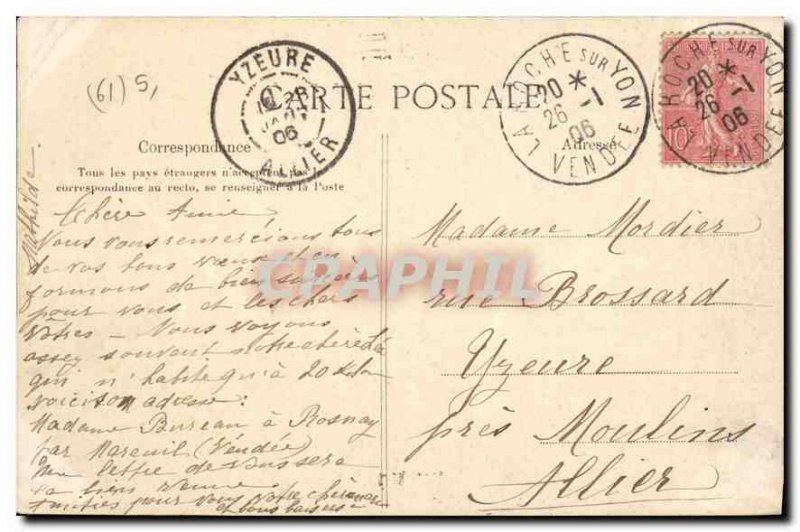 (61) 5,
YZEURE
28
06
ALLIER
CARTE POSTALE
LA ROCHE SUR YON
20 *
26 -1
06
VENDÉE
LA ROCHE SUR YON
20 *
26 -1
06
VENDÉE
10
Correspondance
Adresse
Tous les pays étrangers n'acceptent pas la
correspondance au recto, se renseigner à la Poste
Mathilde
Chère Amie
Nous vous remercions tous
de vos bons vœux et en
formons de bien sincères
pour vous et les chers
vôtres — Nous voyons
assez souvent notre chère
qui n'habite qu'à 20 k
voici son adresse:
Madame Bureau à Rosnay
par Mareuil (Vendée)
lettre de vous sera
la bien venue.
Amitiés pour vous votre
et bons baisers
Madame Mordier
rue Brossard
Yzeure
près Moulins
Allier
CPAPHIL